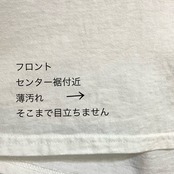 フロント
センター裾付近
薄汚れ →
そこまで目立ちません